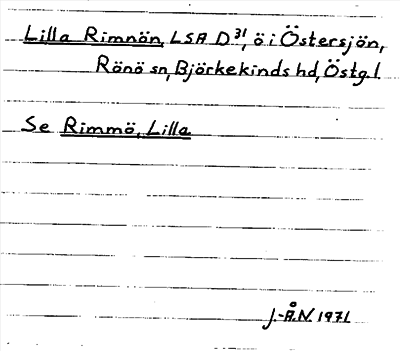 Lilla Rimnön, LSA D³¹, ö i Östersjön,
Rönö sn, Björkekinds hd, Östg.l.
Se Rimmö, Lilla
J.-Å.N. 1971